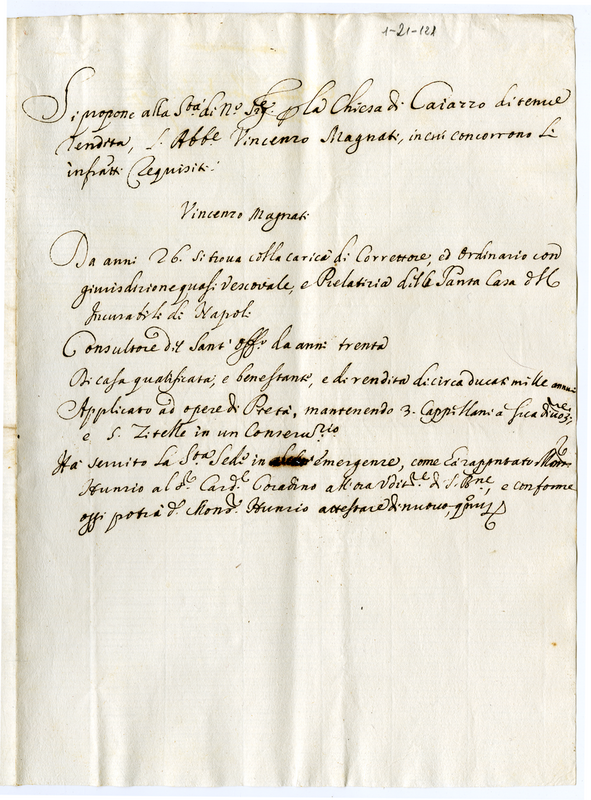 1-21-121
Si propone alla Sta. di No. Sre. p la Chiesa di Caiazzo di tenue
rendita, l'Abbe Vincenzo Magnati, in cui concorrono li
infratti Requisiti.
Vincenzo Magnati
Da anni 26. si trova colla carica di Correttore, ed Ordinario con
giurisdizione quasi Vescovale, e Prelatizia della Santa Casa dell
Incurabili di Napoli
Consultore del Sant' Offo. da anni trenta
Di casa qualificata, e benestante, e di rendita di circa ducati mille annui
Applicato ad opere di Pietà, mantenendo 3. Cappellani a sue
e 5. Zitelle in un Conservrio
Hà servito la Sta. Sede in emergenze, come hà rappntato Monr.
Nunzio al Sr. Cardl. Coradino all'ora Uditre di S. One, e conforme
oggi potrà do. Monr. Nunzio attestare di nuovo,